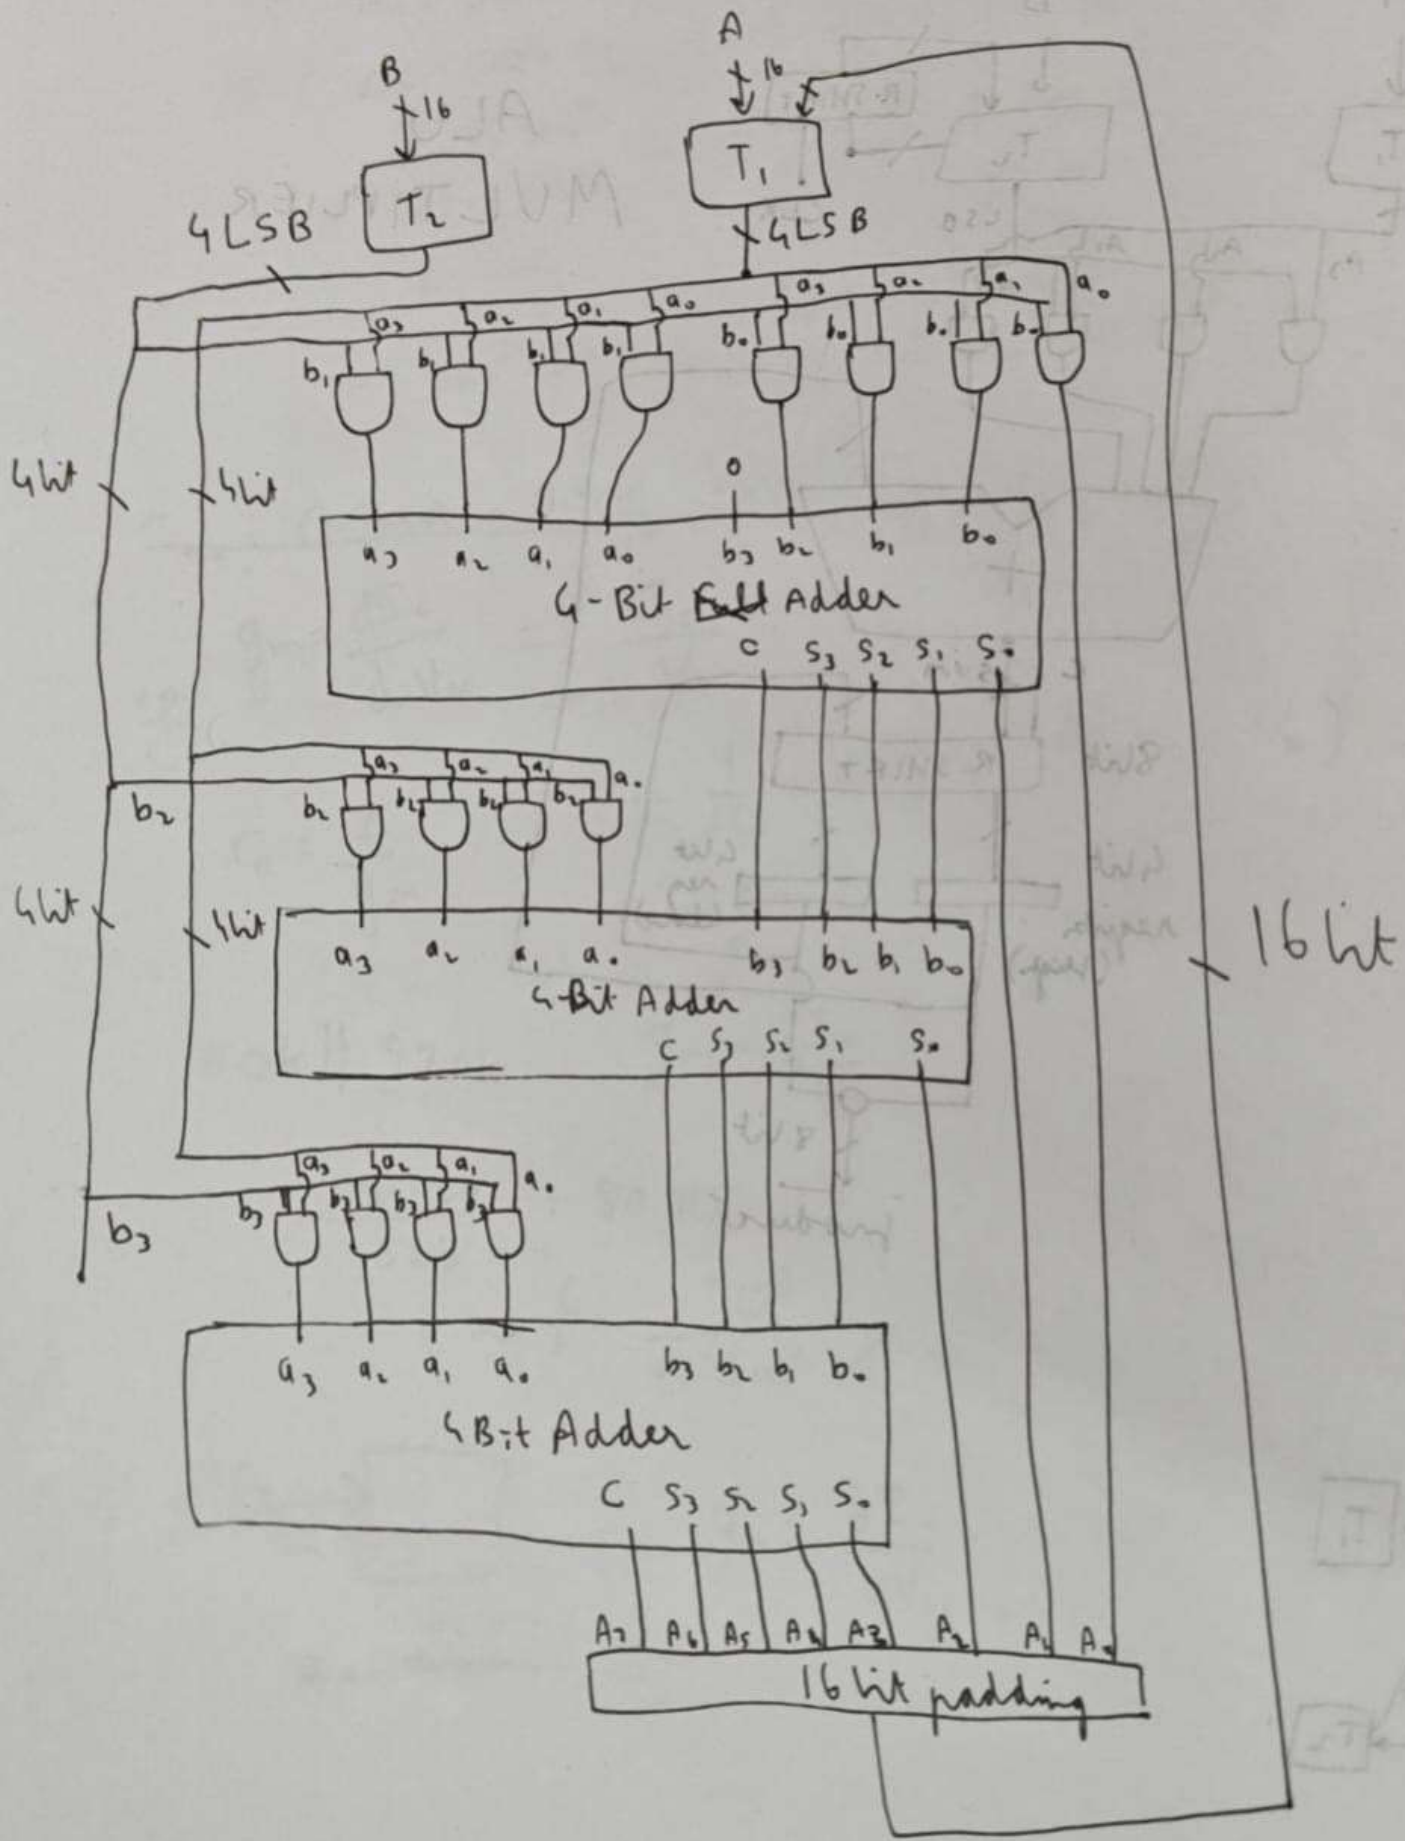 A
16
B
16
T₁
T₂
4 LSB
4 LSB
a₃ a₂ a₁ a₀ a₃ a₂ a₁ a₀
b₁ b₁ b₁ b₁ b₀ b₀ b₀ b₀
4 bit
4 bit
0
a₃ a₂ a₁ a₀ b₃ b₂ b₁ b₀
4-Bit Adder
C S₃ S₂ S₁ S₀
a₃ a₂ a₁ a₀
b₂
b₂ b₂ b₂ b₂
4 bit
4 bit
16 bit
a₃ a₂ a₁ a₀ b₃ b₂ b₁ b₀
4-Bit Adder
C S₃ S₂ S₁ S₀
a₃ a₂ a₁ a₀
b₃ b₃ b₃ b₃
b₃
a₃ a₂ a₁ a₀ b₃ b₂ b₁ b₀
4 Bit Adder
C S₃ S₂ S₁ S₀
A₇ A₆ A₅ A₄ A₃ A₂ A₁ A₀
16 bit padding